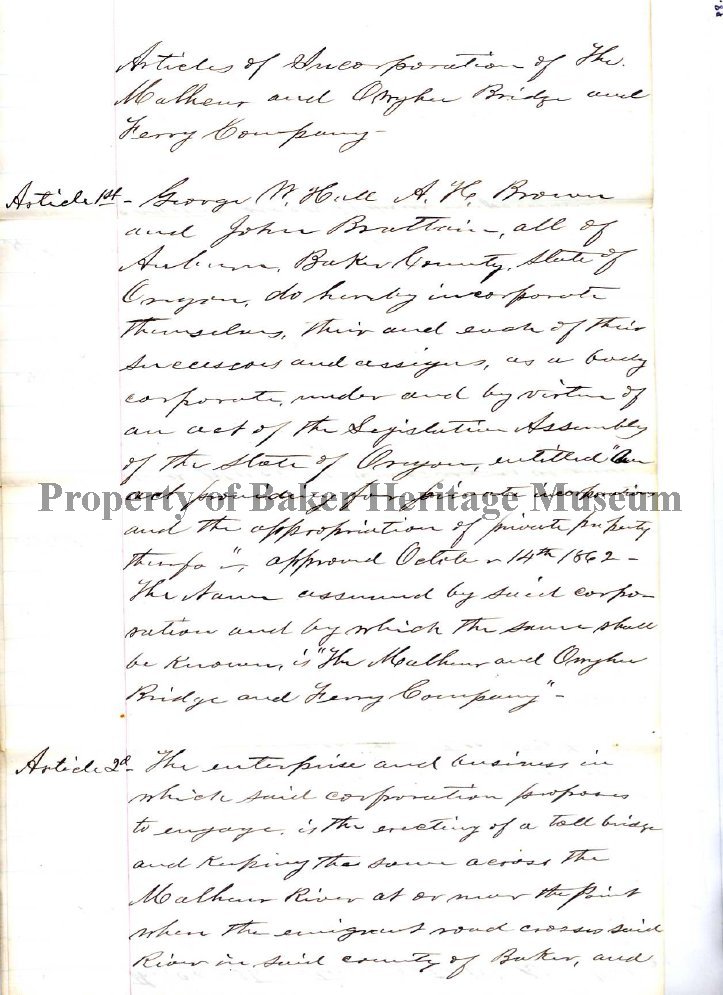 Articles of Incorporation of The
Malheur and Owyhee Bridge and
Ferry Company-
Article 1st- George W. Hall A. H. Brown
and John Brattain, all of
Auburn, Baker County, State of
Oregon, do hereby incorporate
themselves, their and each of their
successors and assigns, as a body
corporate, under and by virtue of
an act of the Legislative Assembly
of the State of Oregon, entitled "An
act providing for private incorporations
Property of Baker Heritage Museum
and the appropriation of private property
therefor"-, approved October 14th 1862-
The Name assumed by said corpo-
ration and by which the same shall
be known, is "The Malheur and Owyhee
Bridge and Ferry Company"-
Article 2d- The enterprise and business in
which said corporation proposes
to engage, is the erecting of a toll bridge
and keeping the same across the
Malheur River at or near the point
where the emigrant road crosses said
River in said county of Baker, and